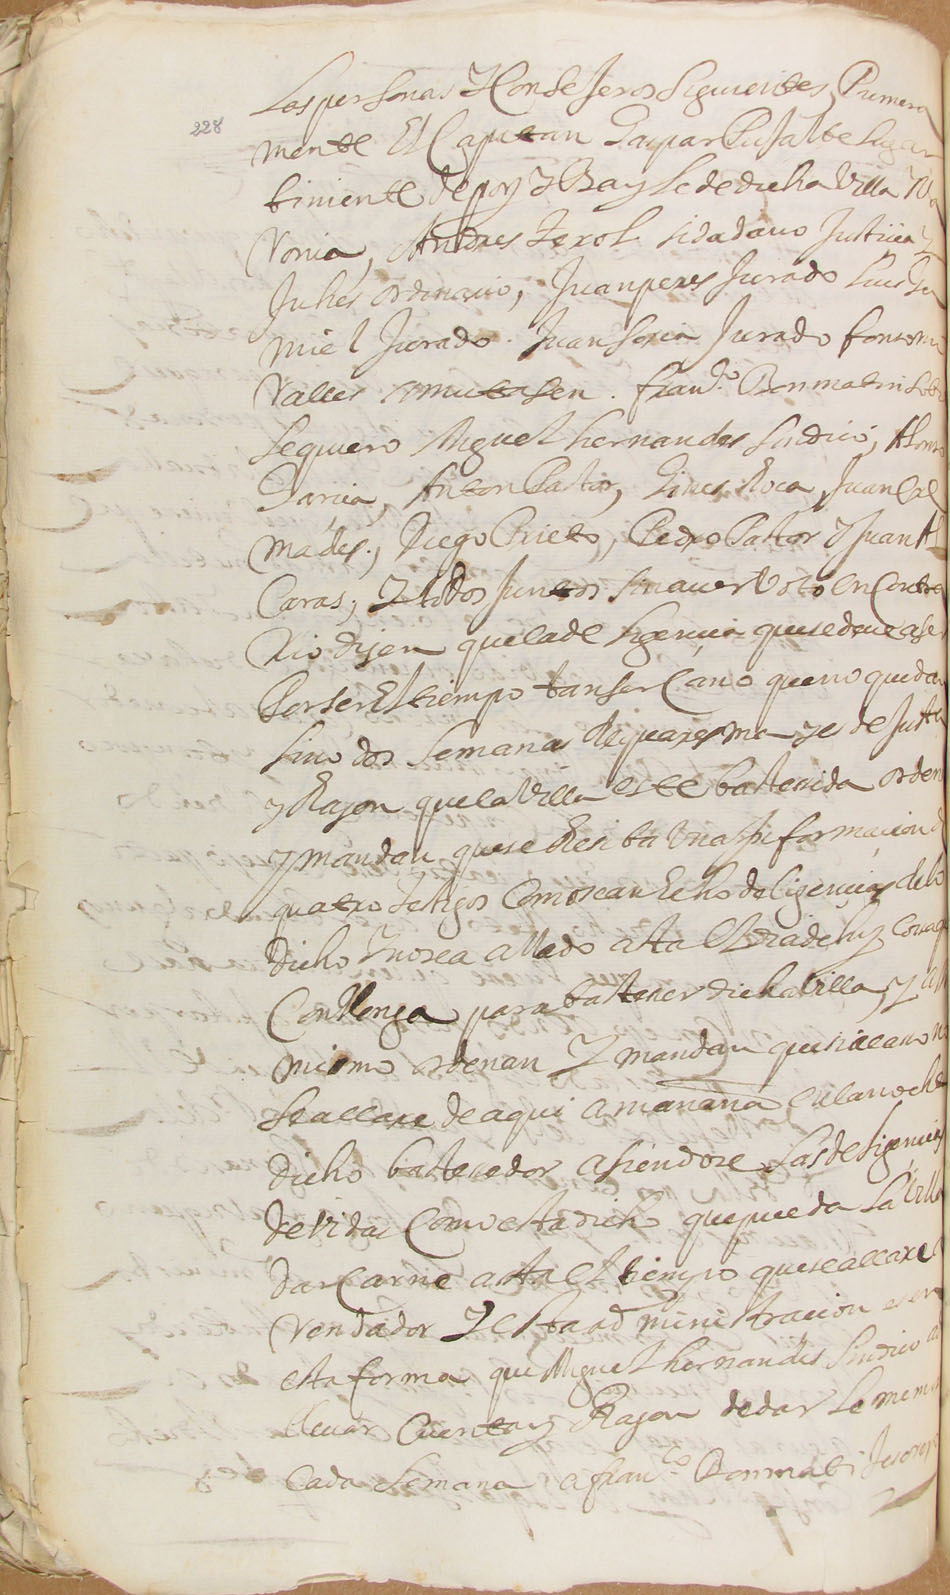 228
Las personas y Consejeros siguientes, Primera
mente El Capitan Gaspar Pujalte Lugar
tiniente de por y Bayle de dicha Villa y Va
ronia, Andres Terol sidadano Justicia y
Juhes ordinario, Juan peres Jurado Luis
miel Jurado. Juan Soria Jurado
Valles amutasen. fran.co Bonmatin sobre
sequiero Miguel hernandes sindico, Alonso
Garcia, Anton Pastor, Gines Roca, Juan Cre
mades, Diego Prieto, Pedro Pastor y Juan Al
Caras, y todos Juntos sin aver Voto en Contra
rio dijen que la deligencia que se deve aser
Por ser El tiempo tan serCano que no quedan
sino dos semanas de quaresma y es de Justi
y Rason que la Villa este bastesida ordenan
y mandan que se Resiba una Informacion de
quatro testigos Como se an Echo deligencias de lo
dicho y no se a allado asta el dia de huy
Con Venga para bastecer dicha Villa, y asi
mismo ordenan y mandan que si acaso no
se allare de aqui a mañana en la noche
dicho bastecedor asiendose las deligencias
devidas Como esta dicho que pueda la Villa
dar Carne asta el tiempo que se allare
Vendador y esta administracion es en
esta forma que Miguel hernandes Sindico a de
llevar Cuenta y Rason de dar le
Cada semana a fran.co Bonmati